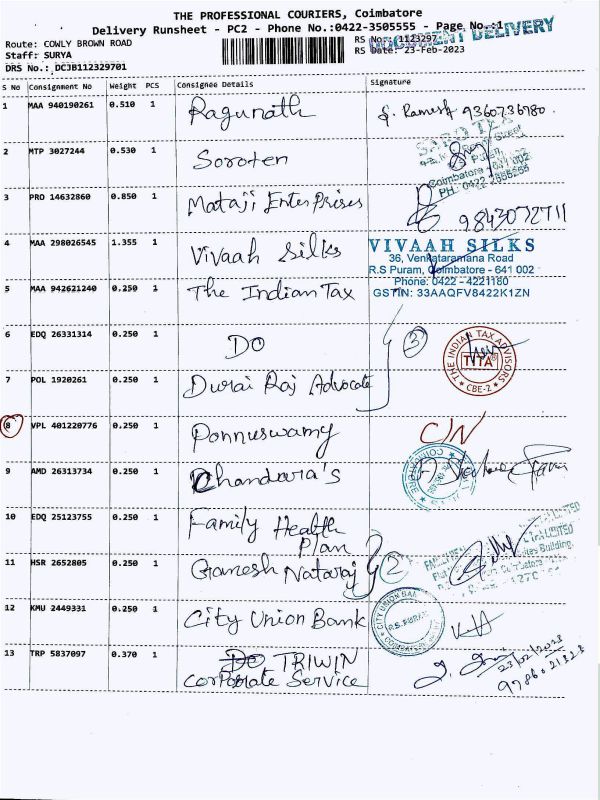 THE PROFESSIONAL COURIERS, Coimbatore
Delivery Runsheet - PC2 - Phone No.:0422-3505555 - Page No.:1
Route: COWLY BROWN ROAD
Staff: SURYA
DRS No.: DCJB112329701
RS No.: 1123297
RS Date: 23-Feb-2023
DOCUMENT DELIVERY
S No Consignment No Weight PCS Consignee Details Signature
1 MAA 940190261 0.510 1 Ragunath S. Ramesh 9360736980
2 MTP 3027244 0.530 1 Soroten
Coimbatore - 641 002
PH: 0422
3 PRO 14632860 0.850 1 Mataji EnterPrises 9843072711
4 MAA 298026545 1.355 1 Vivaah Silks
VIVAAH SILKS
36, Venkataramana Road
R.S Puram, Coimbatore - 641 002
Phone: 0422 - 4221180
GSTIN: 33AAQFV8422K1ZN
5 MAA 942621240 0.250 1 The Indian Tax
6 EDQ 26331314 0.250 1 DO
3
THE INDIAN TAX ADVISORS
TITA
CBE-2
7 POL 1920261 0.250 1 Durai Raj Advocate
8 VPL 401220776 0.250 1 Ponnuswamy C/N
9 AMD 26313734 0.250 1 Chandara's
10 EDQ 25123755 0.250 1 Family Health
Plan
11 HSR 2652805 0.250 1 Ganesh Nataraj 2
12 KMU 2449331 0.250 1 City Union Bank
CITY UNION BANK
R.S. PURAM
13 TRP 5837097 0.370 1 DO TRIWIN
Corporate Service
23/02/2023